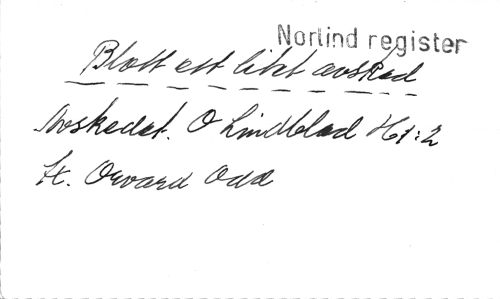 Norlind register
Blott ett litet avsked
Avskedet. O Lindblad H1:2
Orvard Odd